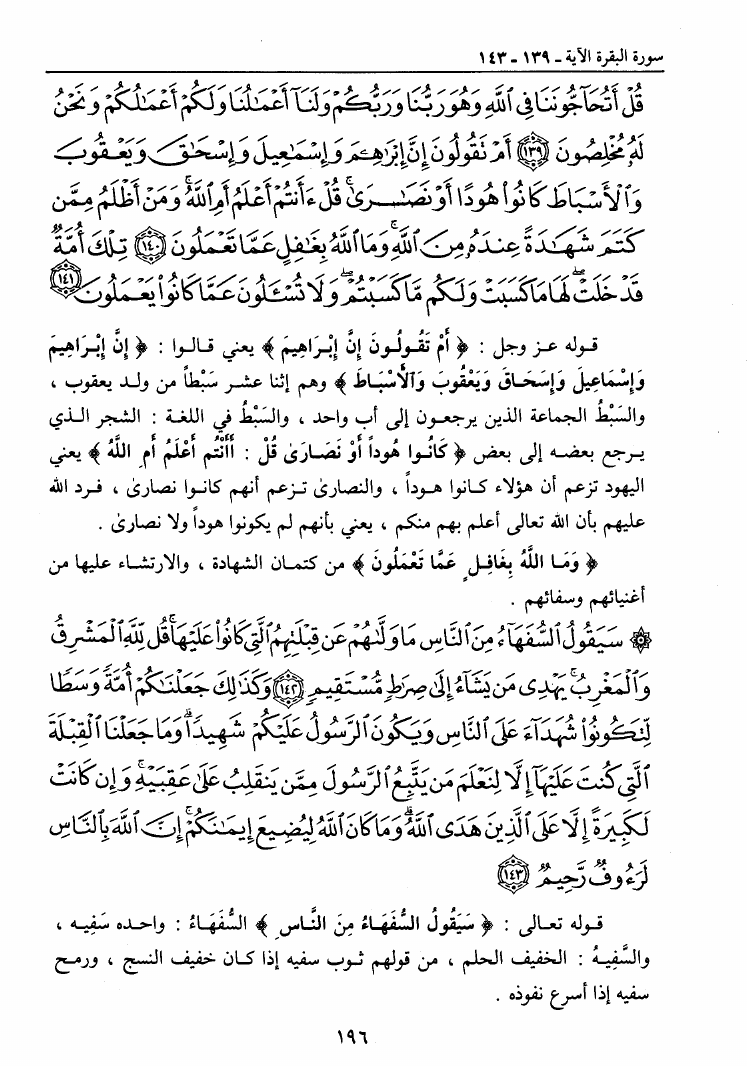 سورة البقرة الآية ـ ١٣٩ ـ ١٤٣
قُلْ أَتُحَآجُّونَنَا فِي ٱللَّهِ وَهُوَ رَبُّنَا وَرَبُّكُمْ وَلَنَآ أَعْمَٰلُنَا وَلَكُمْ أَعْمَٰلُكُمْ وَنَحْنُ
لَهُۥ مُخْلِصُونَ ﴿١٣٩﴾ أَمْ تَقُولُونَ إِنَّ إِبْرَٰهِـۧمَ وَإِسْمَٰعِيلَ وَإِسْحَٰقَ وَيَعْقُوبَ
وَٱلْأَسْبَاطَ كَانُوا۟ هُودًا أَوْ نَصَٰرَىٰ ۗ قُلْ ءَأَنتُمْ أَعْلَمُ أَمِ ٱللَّهُ ۗ وَمَنْ أَظْلَمُ مِمَّن
كَتَمَ شَهَٰدَةً عِندَهُۥ مِنَ ٱللَّهِ ۗ وَمَا ٱللَّهُ بِغَٰفِلٍ عَمَّا تَعْمَلُونَ ﴿١٤٠﴾ تِلْكَ أُمَّةٌ
قَدْ خَلَتْ ۖ لَهَا مَا كَسَبَتْ وَلَكُم مَّا كَسَبْتُمْ ۖ وَلَا تُسْـَٔلُونَ عَمَّا كَانُوا۟ يَعْمَلُونَ ﴿١٤١﴾
قوله عز وجل : ﴿ أَمْ تَقُولُونَ إِنَّ إِبْرَاهِيمَ ﴾ يعني قالوا : ﴿ إِنَّ إِبْرَاهِيمَ
وَإِسْمَاعِيلَ وَإِسْحَاقَ وَيَعْقُوبَ وَٱلْأَسْبَاطَ ﴾ وهم إثنا عشر سَبْطاً من ولد يعقوب ،
والسَبْطُ الجماعة الذين يرجعون إلى أب واحد ، والسَبْطُ في اللغة : الشجر الذي
يرجع بعضه إلى بعض ﴿ كَانُوا هُوداً أَوْ نَصَارَىٰ قُلْ : أَأَنْتُم أَعْلَمُ أَمِ اللَّهُ ﴾ يعني
اليهود تزعم أن هؤلاء كانوا هوداً ، والنصارىٰ تزعم أنهم كانوا نصارىٰ ، فرد الله
عليهم بأن الله تعالى أعلم بهم منكم ، يعني بأنهم لم يكونوا هوداً ولا نصارىٰ .
﴿ وَمَا اللَّهُ بِغَافِلٍ عَمَّا تَعْمَلُونَ ﴾ من كتمان الشهادة ، والارتشاء عليها من
أغنيائهم وسفائهم .
۞ سَيَقُولُ ٱلسُّفَهَآءُ مِنَ ٱلنَّاسِ مَا وَلَّىٰهُمْ عَن قِبْلَتِهِمُ ٱلَّتِى كَانُوا۟ عَلَيْهَا ۚ قُل لِّلَّهِ ٱلْمَشْرِقُ
وَٱلْمَغْرِبُ ۚ يَهْدِى مَن يَشَآءُ إِلَىٰ صِرَٰطٍ مُّسْتَقِيمٍ ﴿١٤٢﴾ وَكَذَٰلِكَ جَعَلْنَٰكُمْ أُمَّةً وَسَطًا
لِّتَكُونُوا۟ شُهَدَآءَ عَلَى ٱلنَّاسِ وَيَكُونَ ٱلرَّسُولُ عَلَيْكُمْ شَهِيدًا ۗ وَمَا جَعَلْنَا ٱلْقِبْلَةَ
ٱلَّتِى كُنتَ عَلَيْهَآ إِلَّا لِنَعْلَمَ مَن يَتَّبِعُ ٱلرَّسُولَ مِمَّن يَنقَلِبُ عَلَىٰ عَقِبَيْهِ ۚ وَإِن كَانَتْ
لَكَبِيرَةً إِلَّا عَلَى ٱلَّذِينَ هَدَى ٱللَّهُ ۗ وَمَا كَانَ ٱللَّهُ لِيُضِيعَ إِيمَٰنَكُمْ ۚ إِنَّ ٱللَّهَ بِٱلنَّاسِ
لَرَءُوفٌ رَّحِيمٌ ﴿١٤٣﴾
قوله تعالى : ﴿ سَيَقُولُ السُّفَهَاءُ مِنَ النَّاسِ ﴾ السُّفَهَاءُ : واحده سَفِيه ،
والسَّفِيهُ : الخفيف الحلم ، من قولهم ثوب سفيه إذا كان خفيف النسج ، ورمح
سفيه إذا أسرع نفوذه .
١٩٦